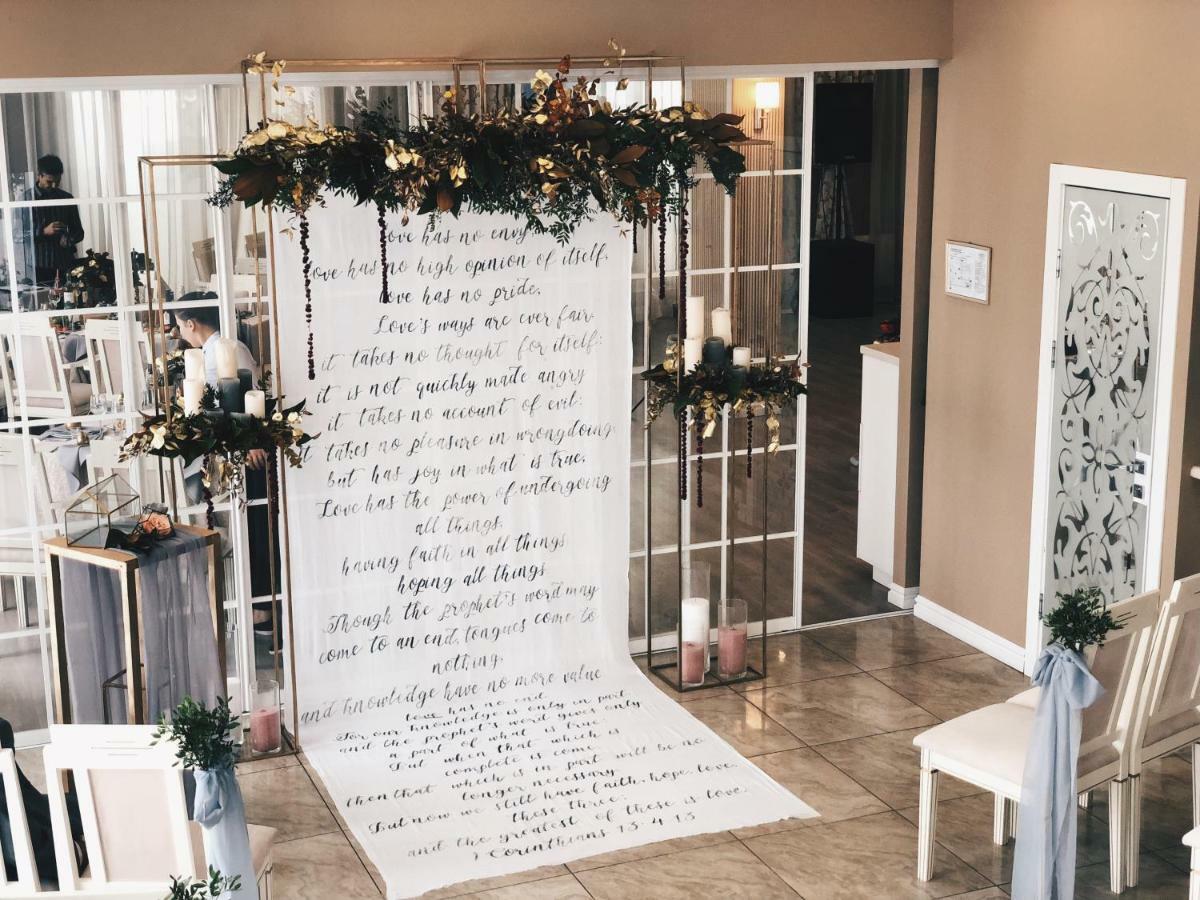 Love has no envy
Love has no high opinion of itself,
love has no pride.
Love's ways are ever fair
it takes no thought for itself:
it is not quickly made angry
it takes no account of evil:
it takes no pleasure in wrongdoing,
but has joy in what is true.
Love has the power of undergoing
all things,
having faith in all things
hoping all things
Though the prophet's word may
come to an end, tongues come to
nothing,
and knowledge have no more value
love has no end.
For our knowledge is only in part,
and the prophet's word gives only
a part of what is true:
But when that which is
complete is come,
then that which is in part will be no
longer necessary.
But now we still have faith, hope, love,
these three:
and the greatest of these is love.
1 Corinthians 13:4-13